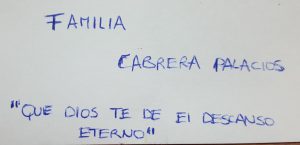 FAMILIA
CABRERA PALACIOS
"QUE DIOS TE DE El DESCANSO
ETERNO"